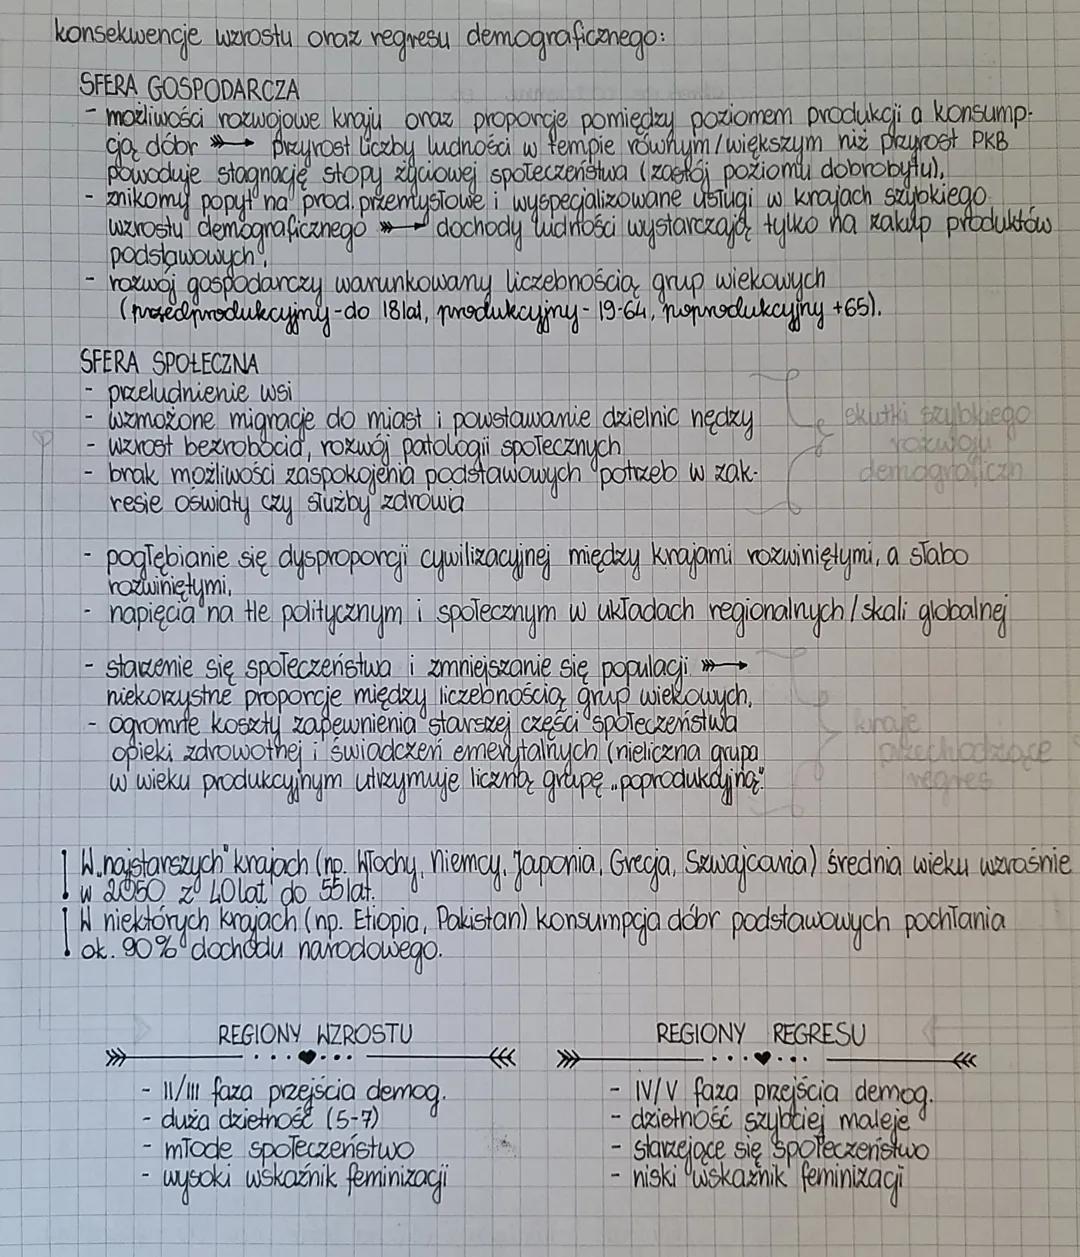 konsekwencje wzrostu oraz regresu demograficznego:
SFERA GOSPODARCZA
- możliwości rozwojowe kraju oraz proporcje pomiędzy poziomem produkcji a konsump-
cją dóbr →→ przyrost liczby ludności w tempie równym/większym niż przyrost PKB
powoduje stagnację stopy życiowej społeczeństwa (zastój poziomu dobrobytu),
- znikomy popyt na prod. przemysłowe i wyspecjalizowane usługi w krajach szybkiego
wzrostu demograficznego →→ dochody ludności wystarczają tylko na zakup produktów
podstawowych,
- rozwój gospodarczy warunkowany liczebnością grup wiekowych
(przedprodukcyjny-do 18lat, produkcyjny- 19-64, poprodukcyjny +65).
SFERA SPOŁECZNA
- przeludnienie wsi
- wzmożone migracje do miast i powstawanie dzielnic nędzy
- wzrost bezrobocia, rozwój patologii społecznych
- brak możliwości zaspokojenia podstawowych potrzeb w zak-
resie oświaty czy służby zdrowia
skutki szybkiego
rozwoju
demograficzn
- pogłębianie się dysproporcji cywilizacyjnej między krajami rozwiniętymi, a słabo
rozwiniętymi,
- napięcia na tle politycznym i społecznym w układach regionalnych/skali globalnej
- starzenie się społeczeństwa i zmniejszanie się populacji →→
niekorzystne proporcje między liczebnością grup wiekowych,
- ogromne koszty zapewnienia starszej części społeczeństwa
opieki zdrowotnej i świadczeń emerytalnych (nieliczna grupa
w wieku produkcyjnym utrzymuje liczną grupę „poprodukcyjną"
kraje
przechodzące
regres
! W „najstarszych" krajach (np. Włochy, Niemcy, Japonia, Grecja, Szwajcaria) średnia wieku wzrośnie
w 2050 z 40lat do 55lat.
! W niektórych krajach (np. Etiopia, Pakistan) konsumpcja dóbr podstawowych pochłania
ok. 90% dochodu narodowego.
REGIONY WZROSTU
- II/III faza przejścia demog.
- duża dzietność (5-7)
- młode społeczeństwo
- wysoki wskaźnik feminizacji
REGIONY REGRESU
- IV/V faza przejścia demog.
- dzietność szybciej maleje
- starzejące się społeczeństwo
- niski wskaźnik feminizacji